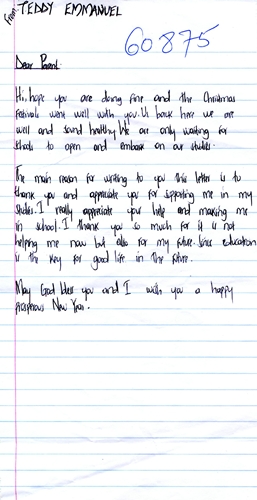 From TEDDY EMMANUEL
60875
Dear Parent.
Hi, hope you are doing fine and the Christmas
festivals went well with you. Us back here we are
well and sound healthy. We are only waiting for
schools to open and embark on our studies.
The main reason for writing to you this letter is to
thank you and appreciate you for supporting me in my
studies. I really appreciate you help and making me
in school. I thank you so much for it is not
helping me now but also for my future. Since education
is the key for good life in the future.
May God bless you and I wish you a happy
prosperous New Year.